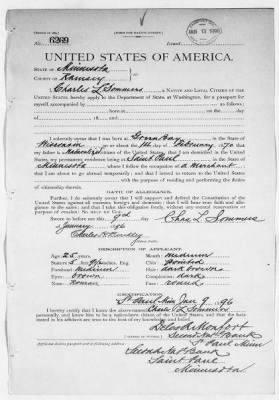 [FORM FOR NATIVE CITIZEN.]
No. 6269 Issued
JAN 13 1896
UNITED STATES OF AMERICA.
STATE OF Minnesota
COUNTY OF Ramsey
I, Charles L Sommers, a NATIVE AND LOYAL CITIZEN OF THE
UNITED STATES, hereby apply to the Department of State, at Washington, for a passport for
myself, accompanied by as follows:
born at on the day
of 18 , and
I solemnly swear that I was born at in the State of
Wisconsin on or about the 1st day of February 1870 that
my father is a citizen of the United States; that I am domiciled in the United
States, my permanent residence being at Saint Paul in the State of
Minnesota where I follow the occupation of a Merchant that
I am about to go abroad temporarily; and that I intend to return to the United States
with the purpose of residing and performing the duties
of citizenship therein.
OATH OF ALLEGIANCE.
Further, I do solemnly swear that I will support and defend the Constitution of the
United States against all enemies, foreign and domestic; that I will bear true faith and allegiance
to the same; and that I take this obligation freely, without any mental reservation or
purpose of evasion: SO HELP ME GOD.
Sworn to before me this 9th day Chas L Sommers
January 1896
Notary Public.
DESCRIPTION OF APPLICANT.
Age: 25 years Mouth: medium
Stature: 5 feet inches, Eng. Chin: pointed
Forehead: medium Hair: dark brown
Eyes: brown Complexion: dark
Nose: Roman Face: round
IDENTIFICATION.
St Paul Minn Jan 9 1896
I hereby certify that I know the above-named Charles L Sommers
personally, and know him to be a native-born citizen of the United States, and that the facts
stated in his affidavit are true to the best of my knowledge and belief.
Second Nat Bank
St Paul Minn
Applicant desires passport sent to following address:
Second Nat Bank
Saint Paul
Minnesota